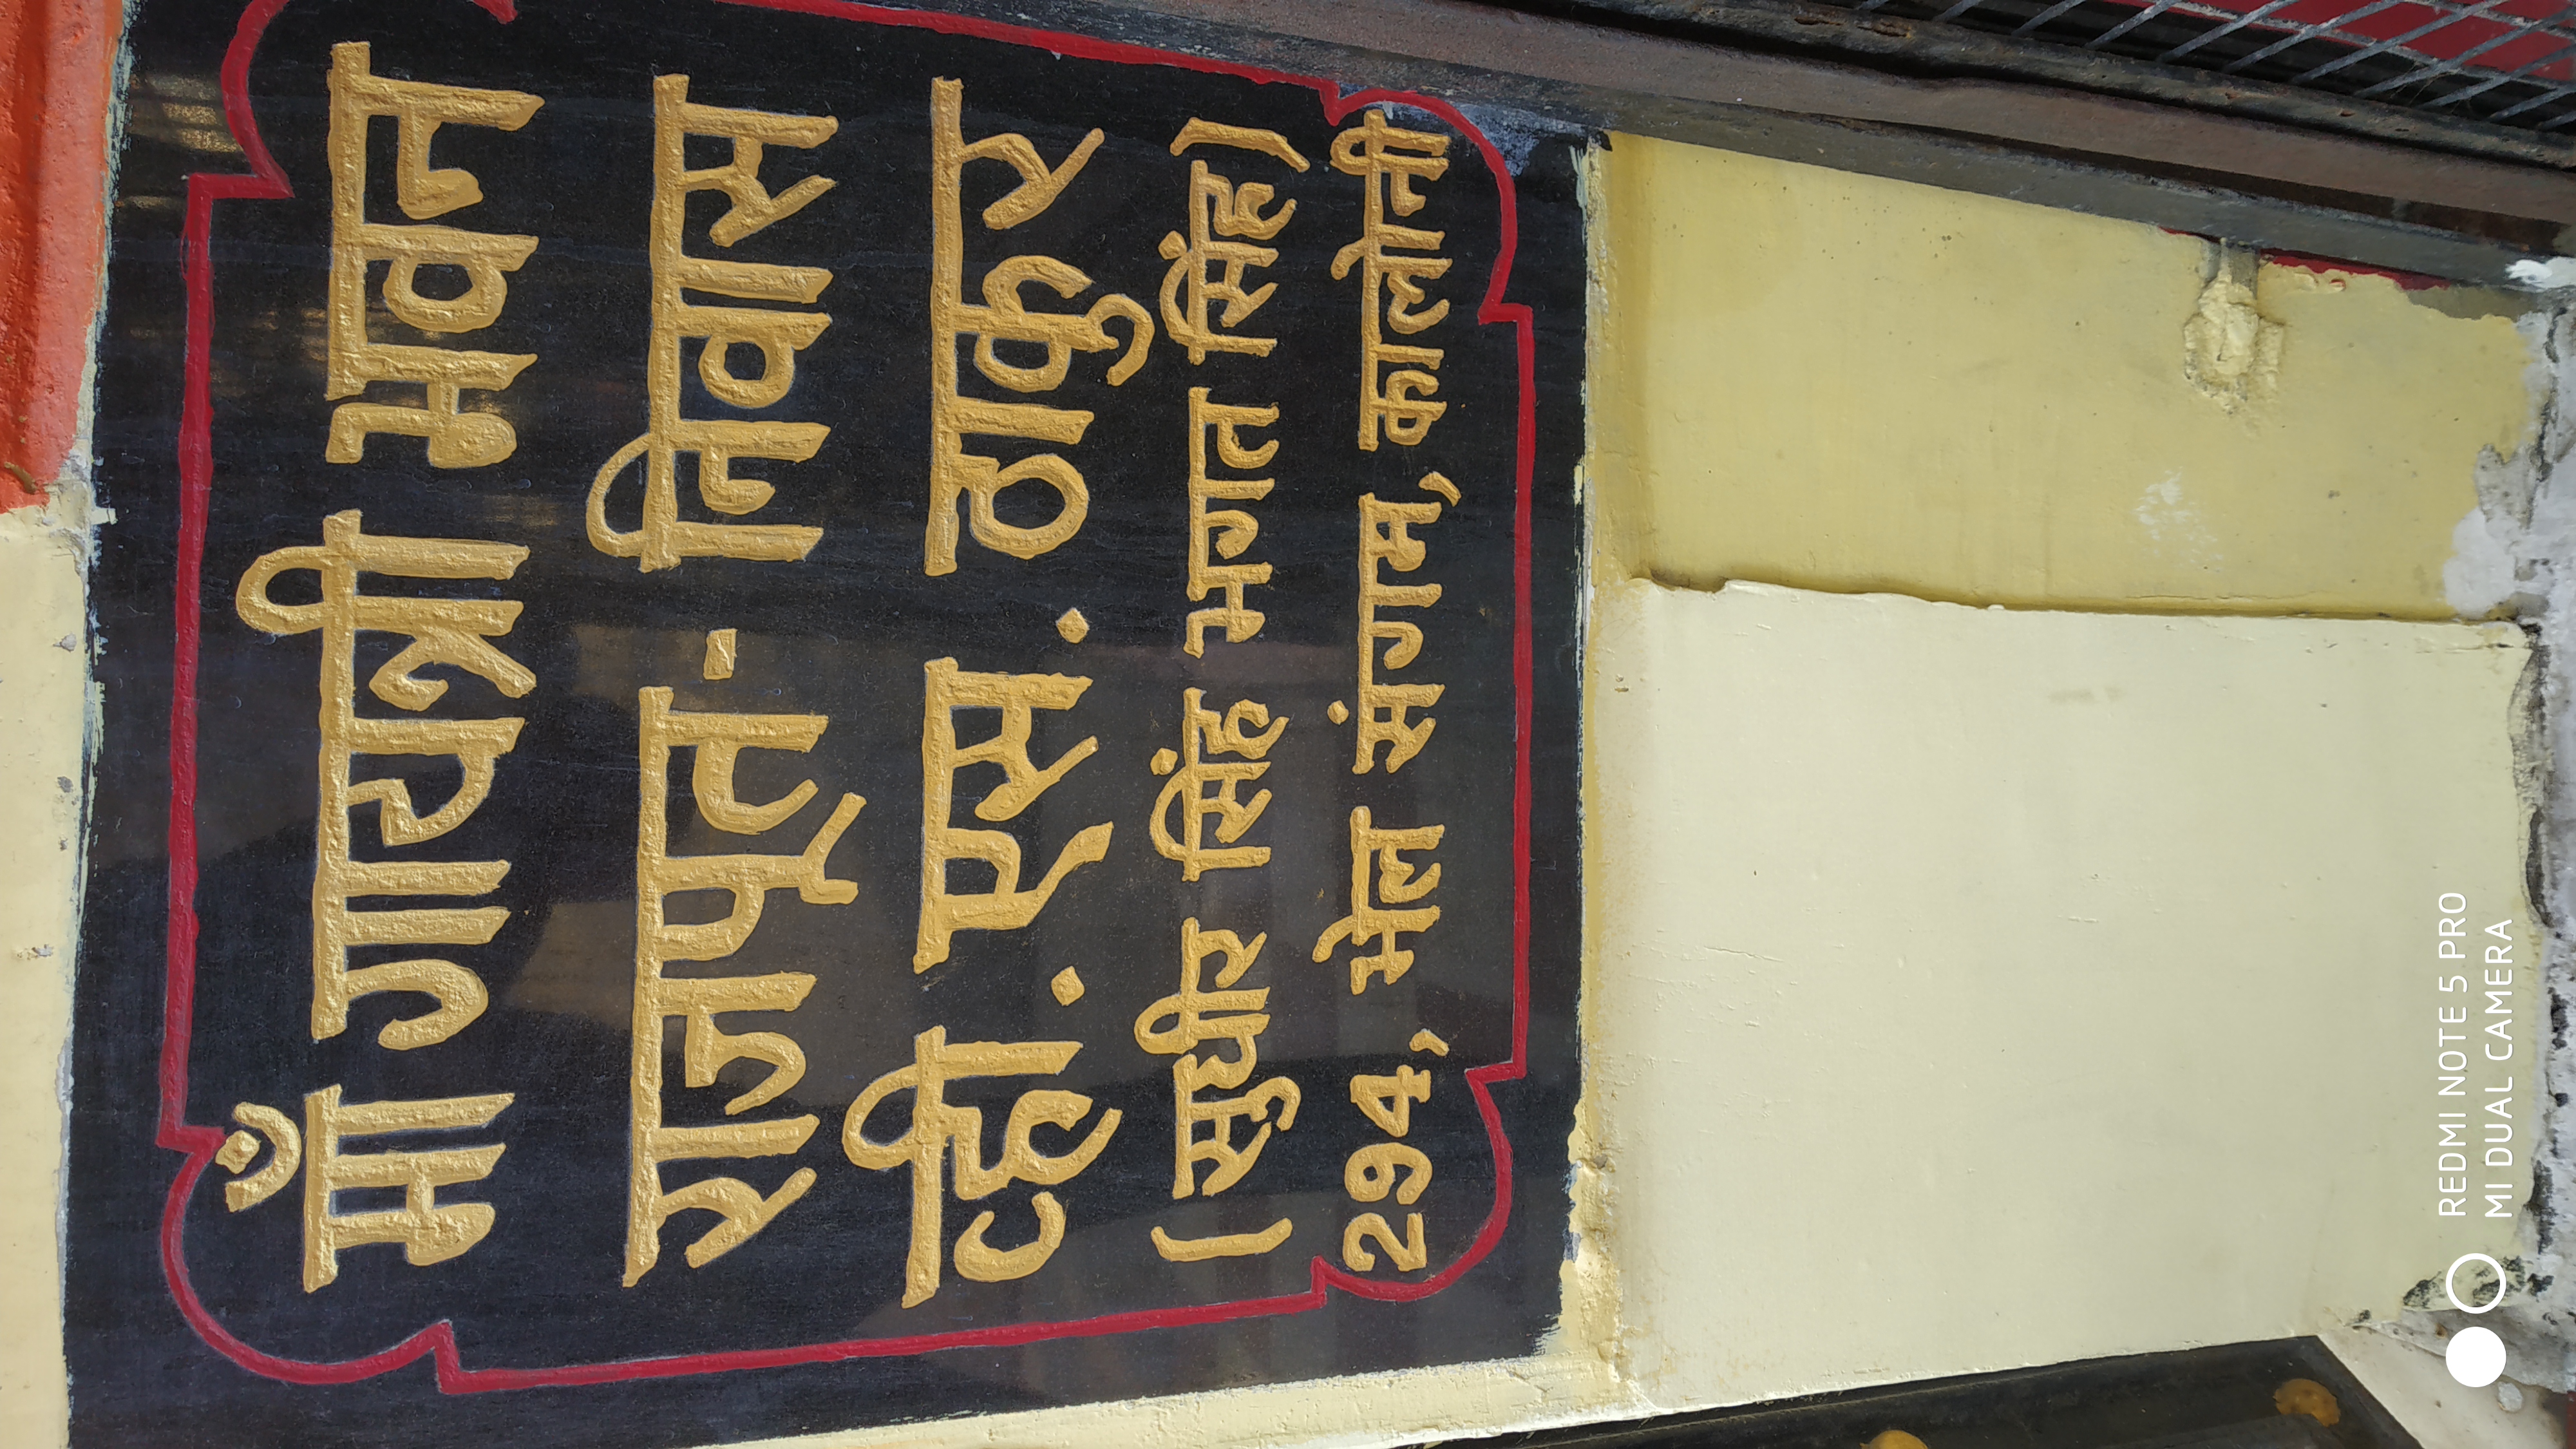 माँ गायत्री भवन
राजपूत - निवास
व्ही. एस. ठाकुर
(सुधीर सिंह भगत सिंह)
294, भेल संगम, कालोनी
REDMI NOTE 5 PRO
MI DUAL CAMERA